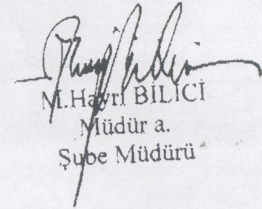 M.Hayri BİLİCİ
Müdür a.
Şube Müdürü